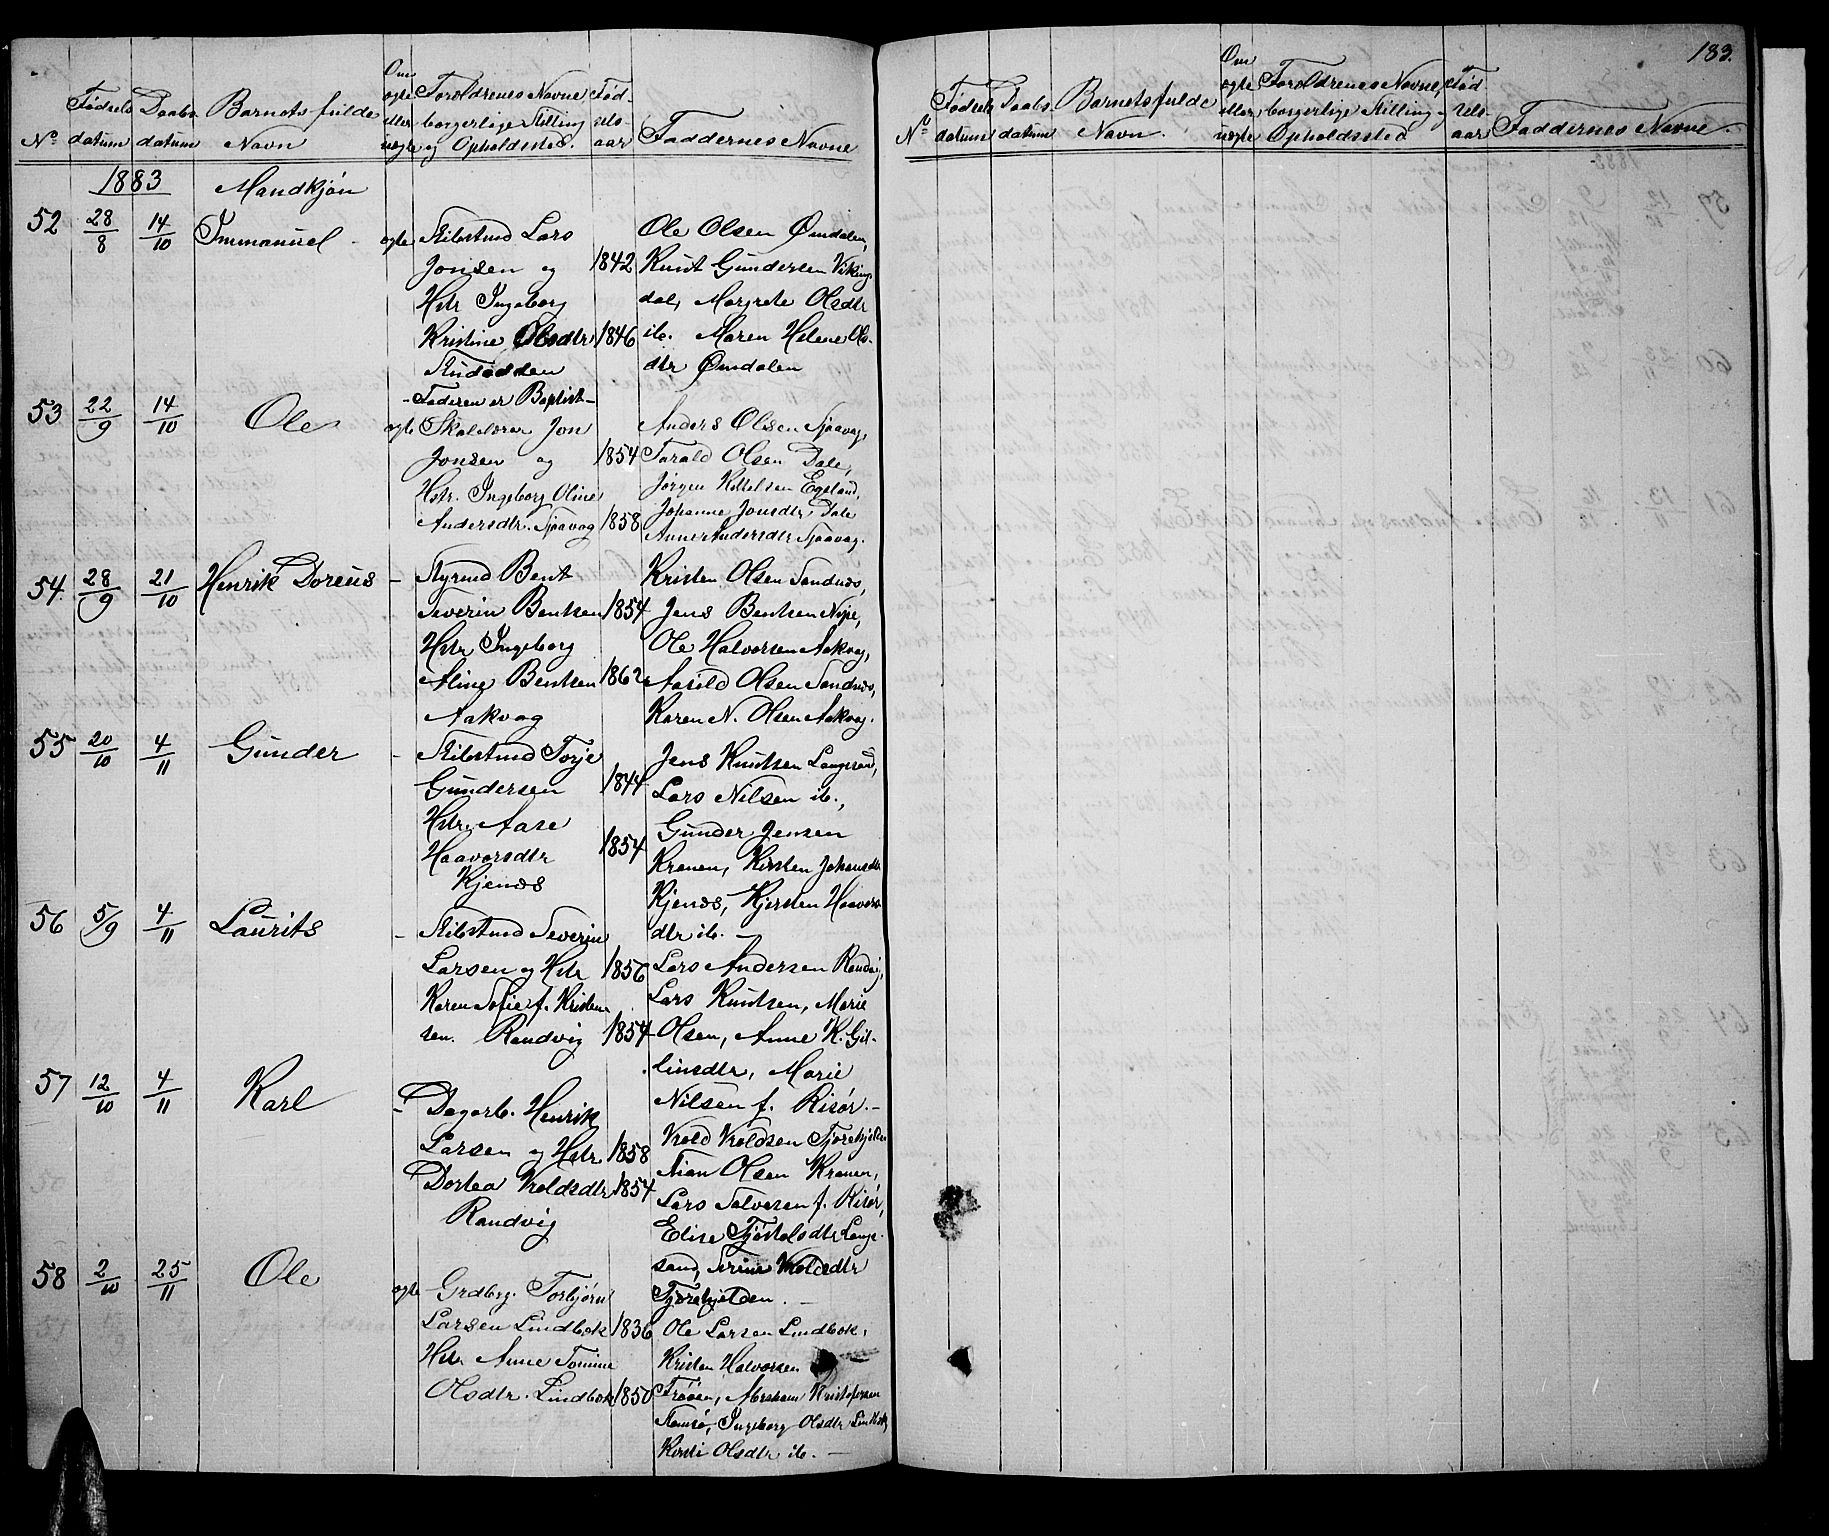 183.
No Fødsels datum Daabs datum Barnets fulde Navn Om ægte eller uægte Forældrenes Navne borgerlige Stilling og Opholdssted. Fødselsaar Faddernes Navne
1883 Mandkjøn
52 28/8 14/10 Immanuel ægte Skibstmd Lars
Jonsen og 1842
Hstr Ingeborg
Kristine Olsdtr 1846
- Faderen er Baptist -
Ole Olsen Ømdalen,
Knut Gundersen Viking
dal, Margrete Olsdtr
ib. Maren Helene Ols-
dtr Ømdalen
53 22/9 14/10 Ole ægte Skolelærer Jon
Jonsen og 1854
Hstr. Ingeborg Oline
Andersdtr. Sjaavag 1858
Anders Olsen Sjaavag,
Tarald Olsen Dale,
Jørgen Kittelsen Egeland,
Johanne Jonsdtr Dale
Anne Andersdtr Sjaavag.
54 28/9 21/10 Henrik Doreus - Styrmd Bent
Severin Bentsen 1854
Hstr Ingeborg
Aline Bentsen 1862
Aakvag
Kristen Olsen Sandnæs,
Jens Bentsen
Ole Halvorsen Aakvag,
Olsen Sandnæs,
Karen N. Olsen Aakvag.
55 20/10 4/11 Gunder - Skibstmd Torje
Gundersen 1844
Hstr. Aase
Haavorsdtr 1854
Kjenæs
Jens Knutsen Langsand,
Lars Nilsen ib.,
Gunder Jensen
Kranen, Kirsten Johansdtr
Kjenæs, Kjersten Haavors
dtr ib. -
56 5/9 4/11 Laurits - Skibstmd Severin
Larsen og Hstr 1856
Karen Sofie f. Kristen
sen. Randvig 1854
Lars Andersen Randvig,
Lars Knutsen, Marie
Olsen, Anne K.
Marie
Nilsen f. Risør. -
57 12/10 4/11 Karl - Dagarb. Henrik
Larsen og Hstr 1858
Dortea Vroldsdtr 1854
Randvig
Vrold Vroldsen
Stian Olsen Kranen,
Lars Salvesen f. Risør,
Elise Lange-
sand, Vroldsdtr
58 2/10 25/11 Ole ægte Grdbrg. Torbjørn
Larsen Lindbæk 1836
Hstr Anne Tomine
Olsdtr. Lindbæk 1850
Ole Larsen Lindbæk,
Kristen Halvorsen
Abraham Kristofersen
Ingeborg Olsdtr Lindbæk,
Kirsti Olsdtr ib. -
No Fødsels datum Daabs datum Barnets fulde Navn. Om ægte eller uægte Forældrenes Navne, borgerlige Stilling og Opholdssted Fødselsaar Faddernes Navne.